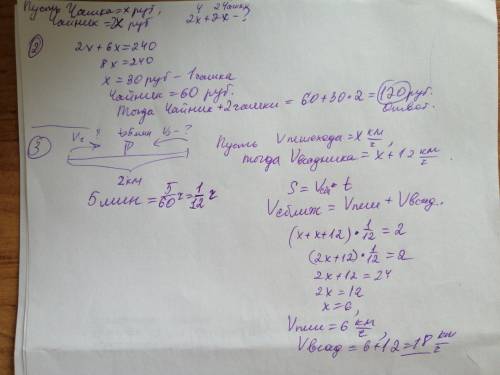 Пусть Чашка = x руб,
Чайник = 2x руб
и 2 чашки
2x + 2x - ?
②
2x + 6x = 240
8x = 240
x = 30 руб - 1 чашка
Чайник = 60 руб.
Тогда Чайник + 2 чашки = 60 + 30 · 2 = 120 руб.
Ответ.
③
V₂ - ? t=5мин V₁ - ?
2км
5 мин = 5/60 ч = 1/12 ч
Пусть Vпешехода = x км/ч,
тогда Vвсадника = x + 12 км/ч.
S = Vсбл · t
Vсближ = Vпеш + Vвсад.
(x + x + 12) · 1/12 = 2
(2x + 12) · 1/12 = 2
2x + 12 = 24
2x = 12
x = 6,
Vпеш = 6 км/ч,
Vвсад = 6 + 12 = 18 км/ч